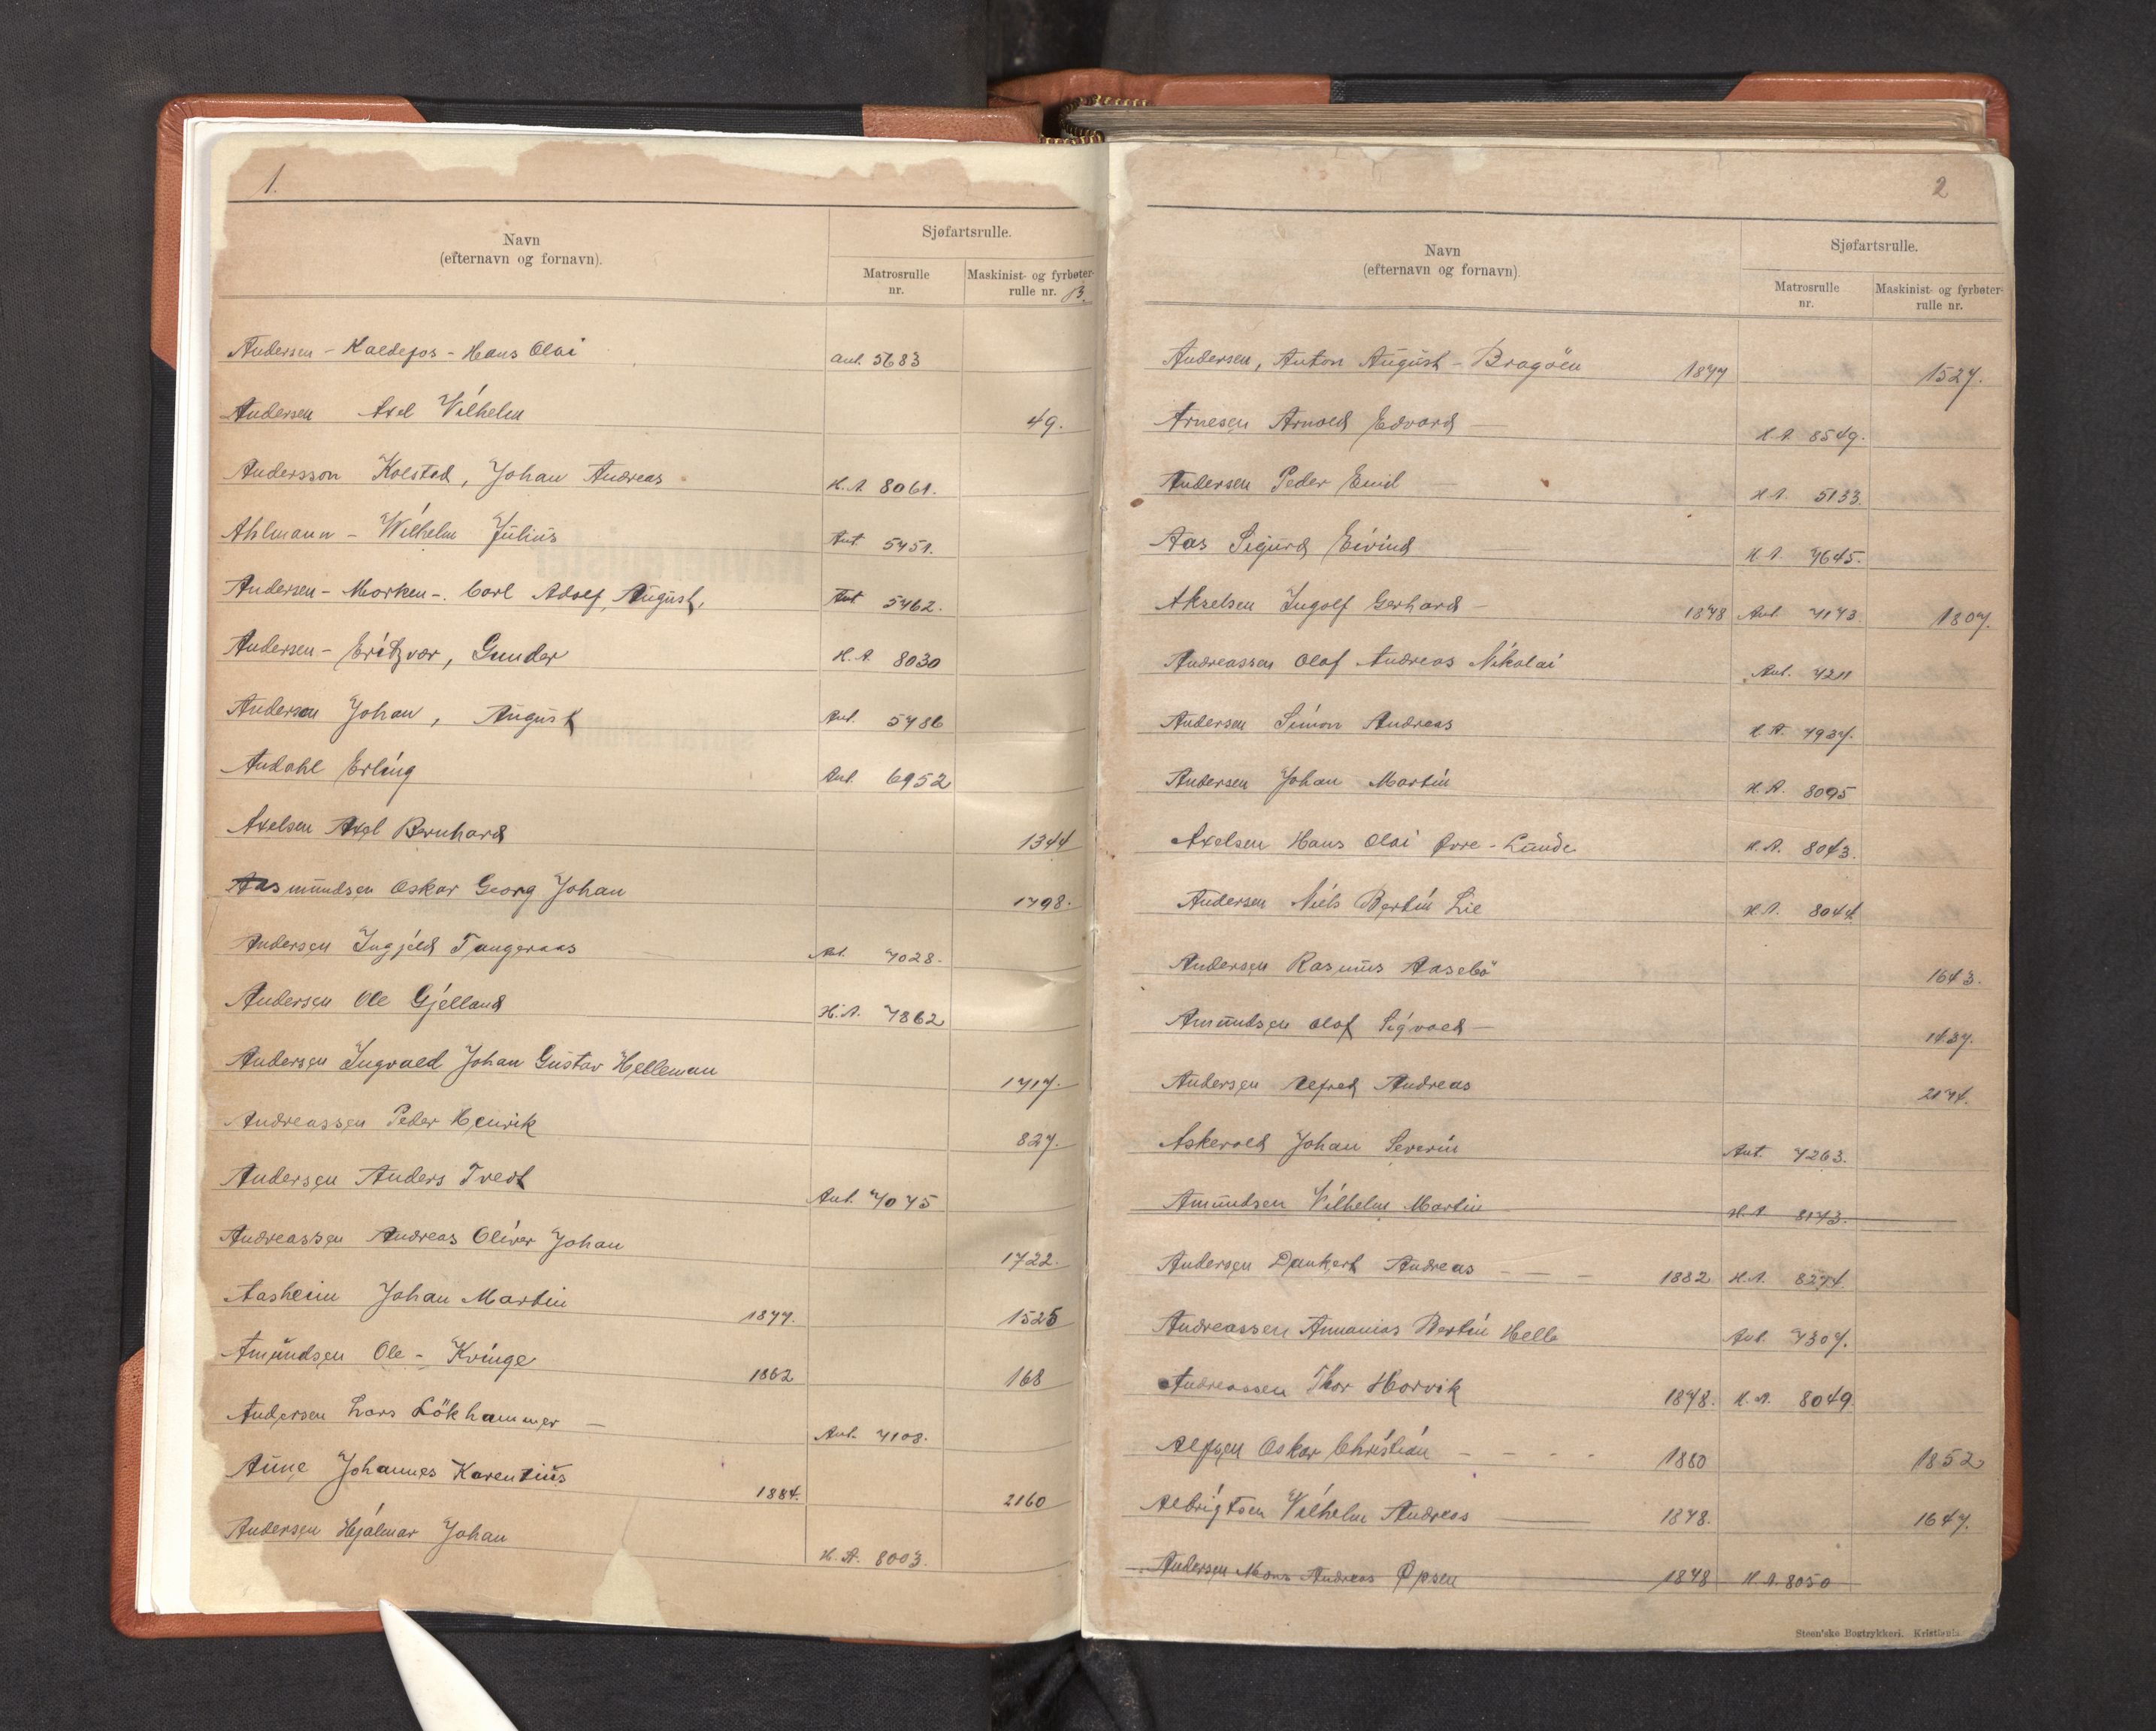 1.
Navn
(efternavn og fornavn).
Sjøfartsrulle.
Matrosrulle nr.
Maskinist- og fyrbøter-rulle nr. B.
Andersen - Kaldefos - Hans Olai Ant. 5683
Andersen Axel Wilhelm 49.
Andersson Kolstad, Johan Andreas H.A. 8061.
Ahlmann - Wilhelm Julius Ant. 5751.
Andersen - Morken -. Carl Adolf August, Ant 5762.
Andersen - Eritzvor, Gunder H.A. 8030
Andersen Johan, August Ant. 5786
Andahl Erling Ant. 6952
Axelsen Axel Bernhard 1344
Aasmundsen Oskar Georg Johan 1798.
Andersen Ingjeld Tangeraas Ant. 7028.
Andersen Ole Gjelland H.A. 7862
Andersen Ingvald Johan Gustav Helleman 1717.
Andreassen Peder Henrik 827.
Andersen Anders Tvedt Ant. 7075
Andreassen Andreas Oliver Johan 1722.
Aasheim Johan Martin 1877. 1525
Amundsen Ole - Kvinge 1862 168
Andersen Lars Lökhammer — Ant. 7108.
Aune Johannes Karentius 1884. 2160
Andersen Hjalmar Johan H.A. 8003.
2
Navn
(efternavn og fornavn)
Sjøfartsrulle.
Matrosrulle nr.
Maskinist- og fyrbøter-rulle nr.
Andersen, Anton August - Bragöen 1877 1527.
Arnesen Arnold Edvard — H.A. 8549.
Andersen Peder Emil — H.A. 5133.
Aas Sigurd Eivind H.A. 7645.
Akselsen Ingolf Gerhard - 1878 Ant. 7173. 1807.
Andreassen Olaf Andreas Nikolai Ant. 7211
Andersen Simon Andreas H.A. 7937.
Andersen Johan Martin H.A. 8095
Axelsen Hans Olai Øvre-Lunde H.A. 8043.
Andersen Niels Bertin Lie H.A. 8044.
Andersen Rasmus Aasebö 1643.
Amundsen Olaf Sigvald — 1437.
Andersen Alfred Andreas 2174.
Askevold Johan Severin Ant. 7263.
Amundsen Vilhelm Martin H.A. 8173.
Andersen Dankert Andreas - — - 1882 H.A. 8274.
Andreassen Annanias Bertin Helle Ant. 7307.
Andreassen Thor Horvik 1878. H.A. 8049.
Alfsen Oskar Christian - - - - 1880 1852
Albrigtsen Vilhelm Andreas — 1878. 1647.
Andersen Mons Andreas Opsen 1878 H.A. 8050
Steen'ske Bogtrykkeri. Kristiania